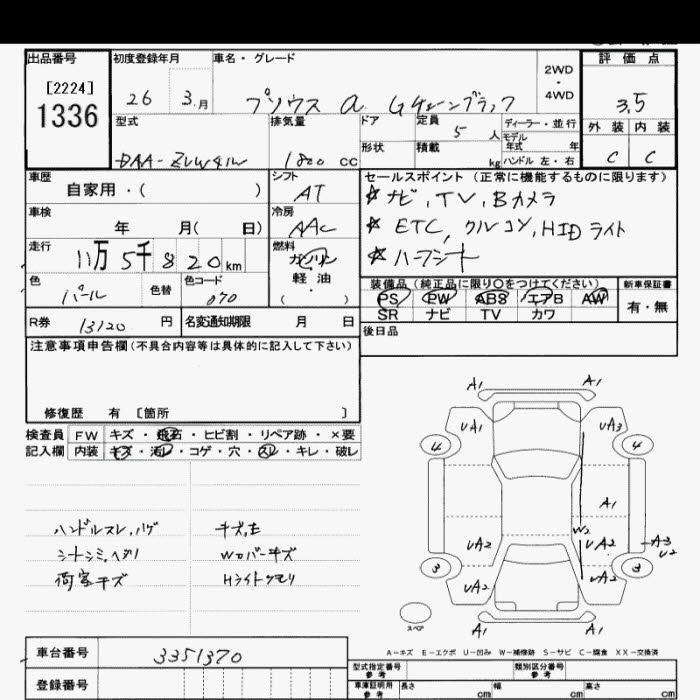 出品番号 初度登録年月 車名・グレード 2WD・4WD 評価点
[2224]
1336
26 3.月
プリウス α Gチューンブラック
3.5
型式 排気量 ドア 定員 5 人 ディーラー・並行 外装 内装
モデル年式 年
DAA-ZVW41W 1800 CC 形状 積載 kg ハンドル 左・右 C C
車歴 自家用・( ) シフト AT
セールスポイント (正常に機能するものに限ります)
☆ナビ, TV, Bカメラ
車検 年 月( 日) 冷房 AAC
☆ETC, クルコン, HIDライト
走行 11万5千820km 燃料 ガソリン・軽油・( )
☆ハーフシート
色 パール 色替 色コード 070
装備品 (純正品に限り〇をつけてください) 新車保証書
PS PW ABS エアB AW 有・無
SR ナビ TV カワ
R券 13120 円 名変通知期限 月 日
後日品
注意事項申告欄(不具合内容等は具体的に記入して下さい)
修復歴 有 [箇所 ]
検査員 FW キズ・飛石・ヒビ割・リペア跡・×要
記入欄 内装 キズ・汚レ・コゲ・穴・スレ・キレ・破レ
ハンドルスレ,ハゲ キズ,モ
シートシミ,ヘタリ Wカバーキズ
荷室キズ Hライトクモリ
A1 A1
UA1 UA3
4 4
A1
W2
UA2 UA2 A3
U2
3 3
UA2 UA2
スペア A1 A1
A-キズ E-エクボ U-凹み W-補修跡 S-サビ C-腐食 XX-交換済
車台番号 3351370
型式指定番号 参考 類別区分番号 参考
登録番号
車庫証明用 参考 長さ cm 幅 cm 高さ cm